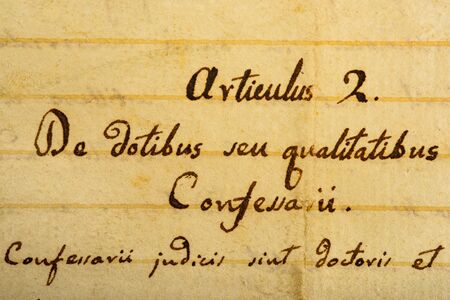 Articulus 2.
De dotibus seu qualitatibus
Confessarii.
Confessarii judicis sint doctoris et